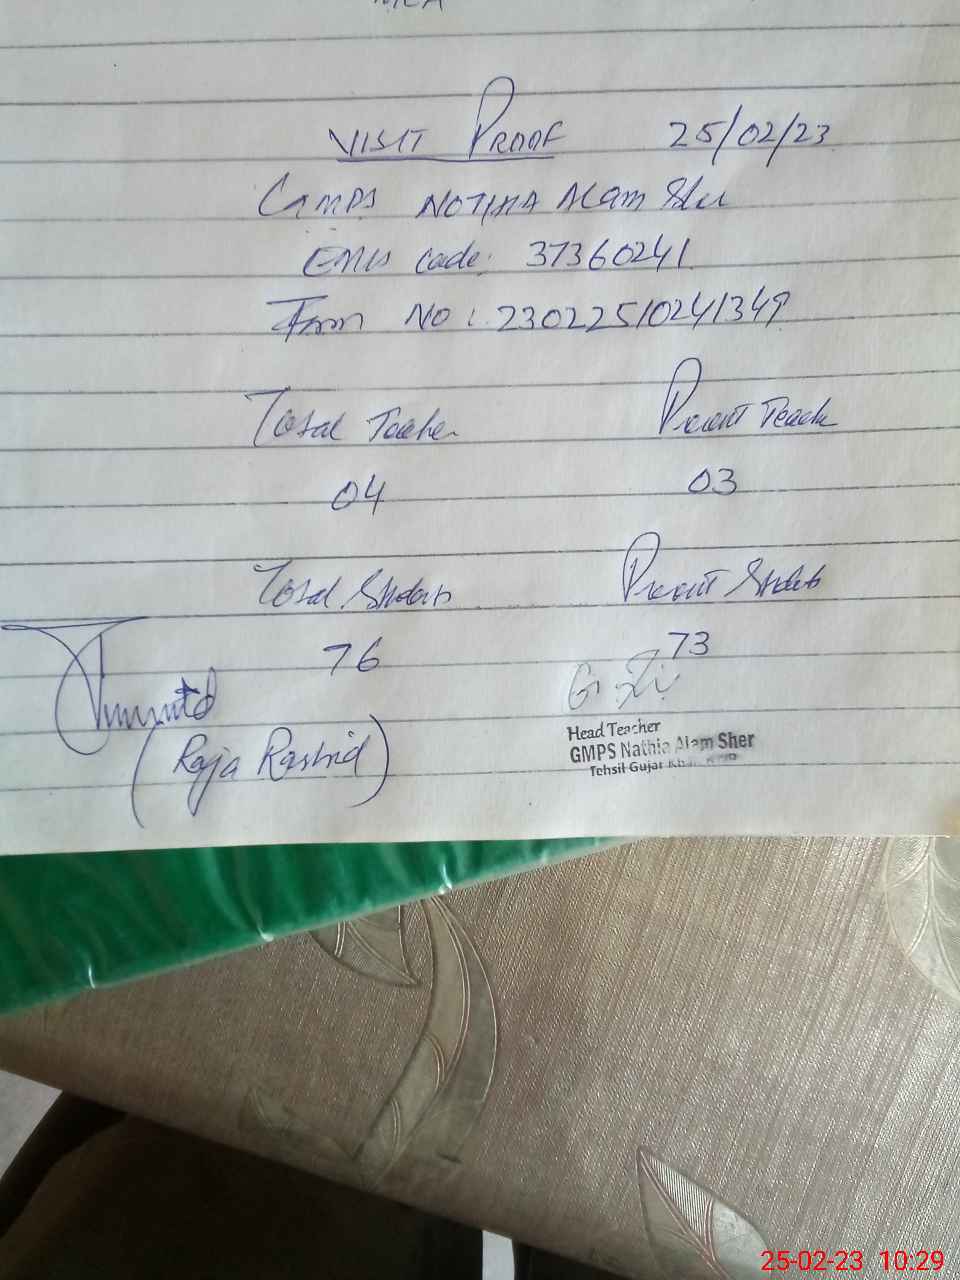 MEA
VISIT PROOF 25/02/23
GMPS NOTHIA Alam Sher
EMIS Code: 37360241
Form No: 23022510241349
Total Teacher Present Teacher
04 03
Total Students Present Students
76 73
(Raja Rashid)
Head Teacher
GMPS Nathia Alam Sher
Tehsil Gujar Khan
25-02-23 10:29